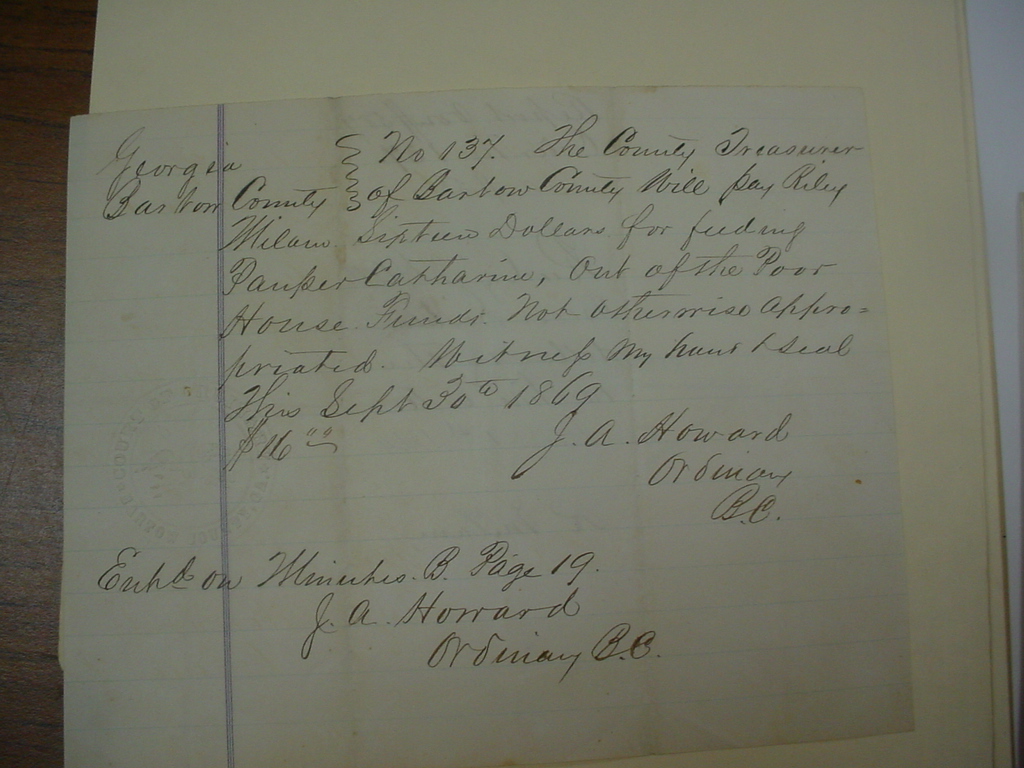 Georgia } No 137. The County Treasurer
Bartow County } of Bartow County Will pay Riley
Milam Sixteen Dollars for feeding
Pauper Catharine, Out of the Poor
House Funds. Not otherwise Appro=
priated. Witness My hand & seal
This Sept 30th 1869
$16.00 J. A. Howard
Ordinary
B.C.
Entd on Minutes. B. Page 19.
J. A. Howard
Ordinary B.C.